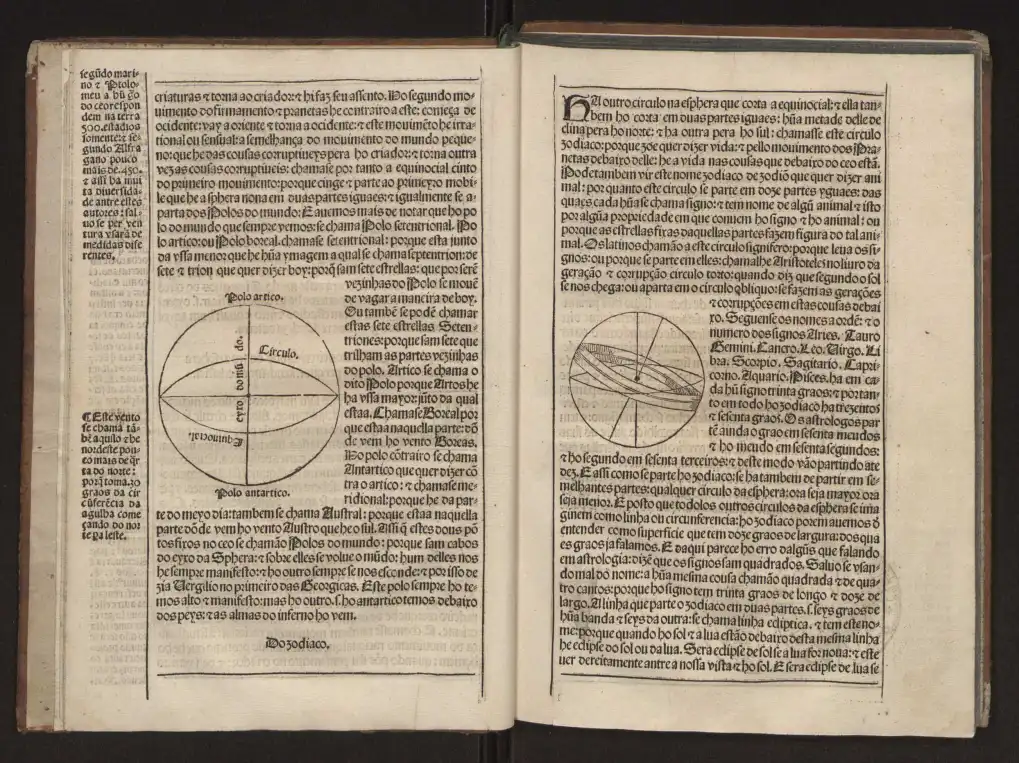 segũdo mari-
no ⁊ Ptolo-
meu a hũ grao
do ceo respon
dem na terra
500. estadios
somente: ⁊ se-
gundo Alfra
gano pouco
mais de .450.
⁊ assi ha mui
ta diuersida-
de antre elles
autores: sal-
uo se per ven
tura vsarã de
medidas dife
rentes.
criaturas ⁊ torna ao criador: ⁊ hi faz seu assento. Do segundo mo-
uimento do firmamento ⁊ planetas he contrairo a este: começa de
ocidente: vay a oriente ⁊ torna a ocidente: ⁊ este mouimẽto he irra-
tional ou sensual: a semelhança do mouimento do mundo peque-
no: que he das cousas corruptiueys pera ho criador: ⁊ torna outra
vez as cousas corruptiueis: chamase por tanto a equinocial cinto
do primeiro mouimento: porque cinge ⁊ parte ao primeyro mobi-
le que he a sphera nona em duas partes iguaes: ⁊ igualmente se a-
parta dos Polos do mundo: E auemos mais de notar que ho po
lo do mundo que sempre vemos: se chama Polo setentrional. Po
lo artico: ou Polo boreal. chamase setentrional: porque esta junto
da vssa menor que he hũa ymagem a qual se chama septentrion: de
sete ⁊ trion que quer dizer boy: porq̃ sam sete estrellas: que por serẽ
vezinhas do Polo se mouẽ
de vagar a maneira de boy.
Ou tambẽ se podẽ chamar
estas sete estrellas Seten-
triones: porque sam sete que
trilham as partes vezinhas
do polo. Artico se chama o
dito Polo porque Artos he
ha vssa mayor: jũto da qual
estaa. Chamase Boreal por
que estaa naquella parte: dõ
de vem ho vento Boreas.
Do polo cõtrairo se chama
Antartico que quer dizer cõ
tra o artico: ⁊ chamase me-
ridional: porque he da par-
te do meyo dia: tambem se chama Austral: porque estaa naquella
parte dõde vem ho vento Austro que he o sul. Assi q̃ estes dous põ
tos fixos no ceo se chamão Polos do mundo: porque sam cabos
do exyo da Sphera: ⁊ sobre elles se volue o mũdo: hum delles nos
he sempre manifesto: ⁊ ho outro sempre se nos esconde: ⁊ por isso de
zia Vergilio no primeiro das Georgicas. Este polo sempre ho te-
mos alto ⁊ manifesto: mas ho outro .s. ho antartico temos debaixo
dos peys: ⁊ as almas do inferno ho vem.
Polo artico.
Circulo.
exyo do mũ do.
Equinocial.
Polo antartico.
¶ Este vento
se chama tã-
bẽ aquilo ⁊ he
nordeste pou-
co mais de q̃r
ta do norte:
porq̃ toma .30
graos da cir
cũferẽcia da
agulha come
çando do nor
te pa leste.
Do zodiaco.
HA outro circulo na esphera que corta a equinocial: ⁊ ella tan-
bem ho corta em duas partes iguaes: hũa metade delle de
clina pera ho norte: ⁊ ha outra pera ho sul: chamasse este circulo
zodiaco: porque zoe quer dizer vida: ⁊ pello mouimento dos Pra-
netas debaixo delle: he a vida nas cousas que debaixo do ceo estã.
Pode tambem vir este nome zodiaco de zodiõ que quer dizer ani
mal: por quanto este circulo se parte em doze partes yguaes: das
quaes cada hũa se chama signo: ⁊ tem nome de algũ animal ⁊ isto
por algũa propriedade em que conuem ho signo ⁊ ho animal: ou
porque as estrellas fixas daquellas partes fazem figura do tal ani-
mal. Os latinos chamão a este circulo signifero: porque leua os si-
gnos: ou porque se parte em elles: chamalhe Aristoteles no liuro da
geração ⁊ corrupção circulo torto: quando diz que segundo o sol
se nos chega: ou aparta em o circulo obliquo: se fazem as gerações
⁊ corrupções em estas cousas debai
xo. Seguense os nomes a ordẽ: ⁊ o
numero dos signos Aries. Tauro
Gemini. Cancro. Leo. Uirgo. Li
bra. Scorpio. Sagitario. Capri-
corno. Aquario. Pisces. ha em ca-
da hũ signo trinta graos: ⁊ por tan-
to em todo ho zodiaco ha trezentos
⁊ sesenta graos. Os astrologos par
tẽ ainda o grao em sesenta meudos
⁊ ho meudo em sesenta segundos:
⁊ ho segundo em sesenta terceiros: ⁊ deste modo vão partindo ate
dez. E assi como se parte ho zodiaco: se ha tambem de partir em se-
melhantes partes: qualquer circulo da esphera: ora seja mayor ora
seja menor. E posto que todolos outros circulos da esphera se ima
ginem como linha ou circunferencia: ho zodiaco porem auemos d̃
entender como superficie que tem doze graos de largura: dos qua
es graos ja falamos. E daqui parece ho erro dalgũs que falando
em astrologia: dizẽ que os signos sam quadrados. Saluo se vsan-
do mal dõ nome: a hũa mesma cousa chamão quadrada ⁊ de qua-
tro cantos: porque ho signo tem trinta graos de longo ⁊ doze de
largo. A linha que parte o zodiaco em duas partes .s. seys graos de
hũa banda ⁊ seys da outra: se chama linha ecliptica. ⁊ tem este no-
me: porque quando ho sol ⁊ a lua estão debaixo desta mesma linha
he eclipse do sol ou da lua. Sera eclipse de sol se a lua for noua: ⁊ este
uer dereitamente antre a nossa vista ⁊ ho sol. E sera eclipse de .lua se